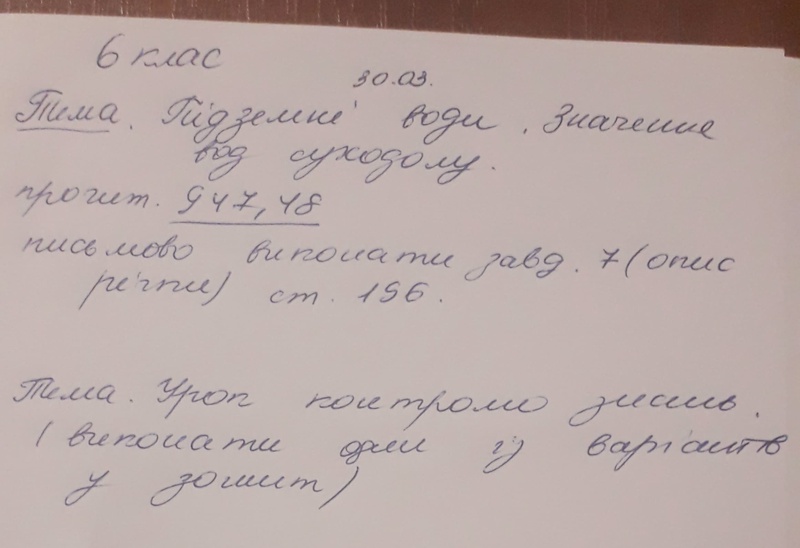 6 клас
30.03.
Тема. Підземні води. Значення
вод суходолу.
прочит. §47,48
письмово виконати завд. 7 (опис
річки) ст. 196.
Тема. Урок контролю знань.
(виконати один із варіантів
у зошит)